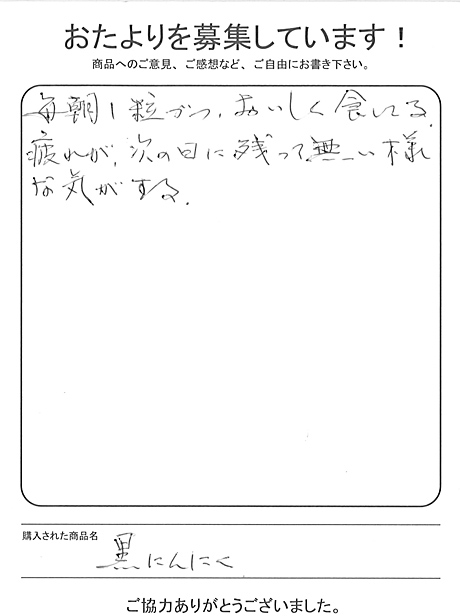 おたよりを募集しています！
商品へのご意見、ご感想など、ご自由にお書き下さい。
毎朝1粒づつ、おいしく食してる。
疲れが、次の日に残って無い様
な気がする。
購入された商品名
黒にんにく
ご協力ありがとうございました。